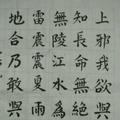 上邪我欲與
知長命無絕
無陵江水為
雷震震夏雨
地合乃敢與